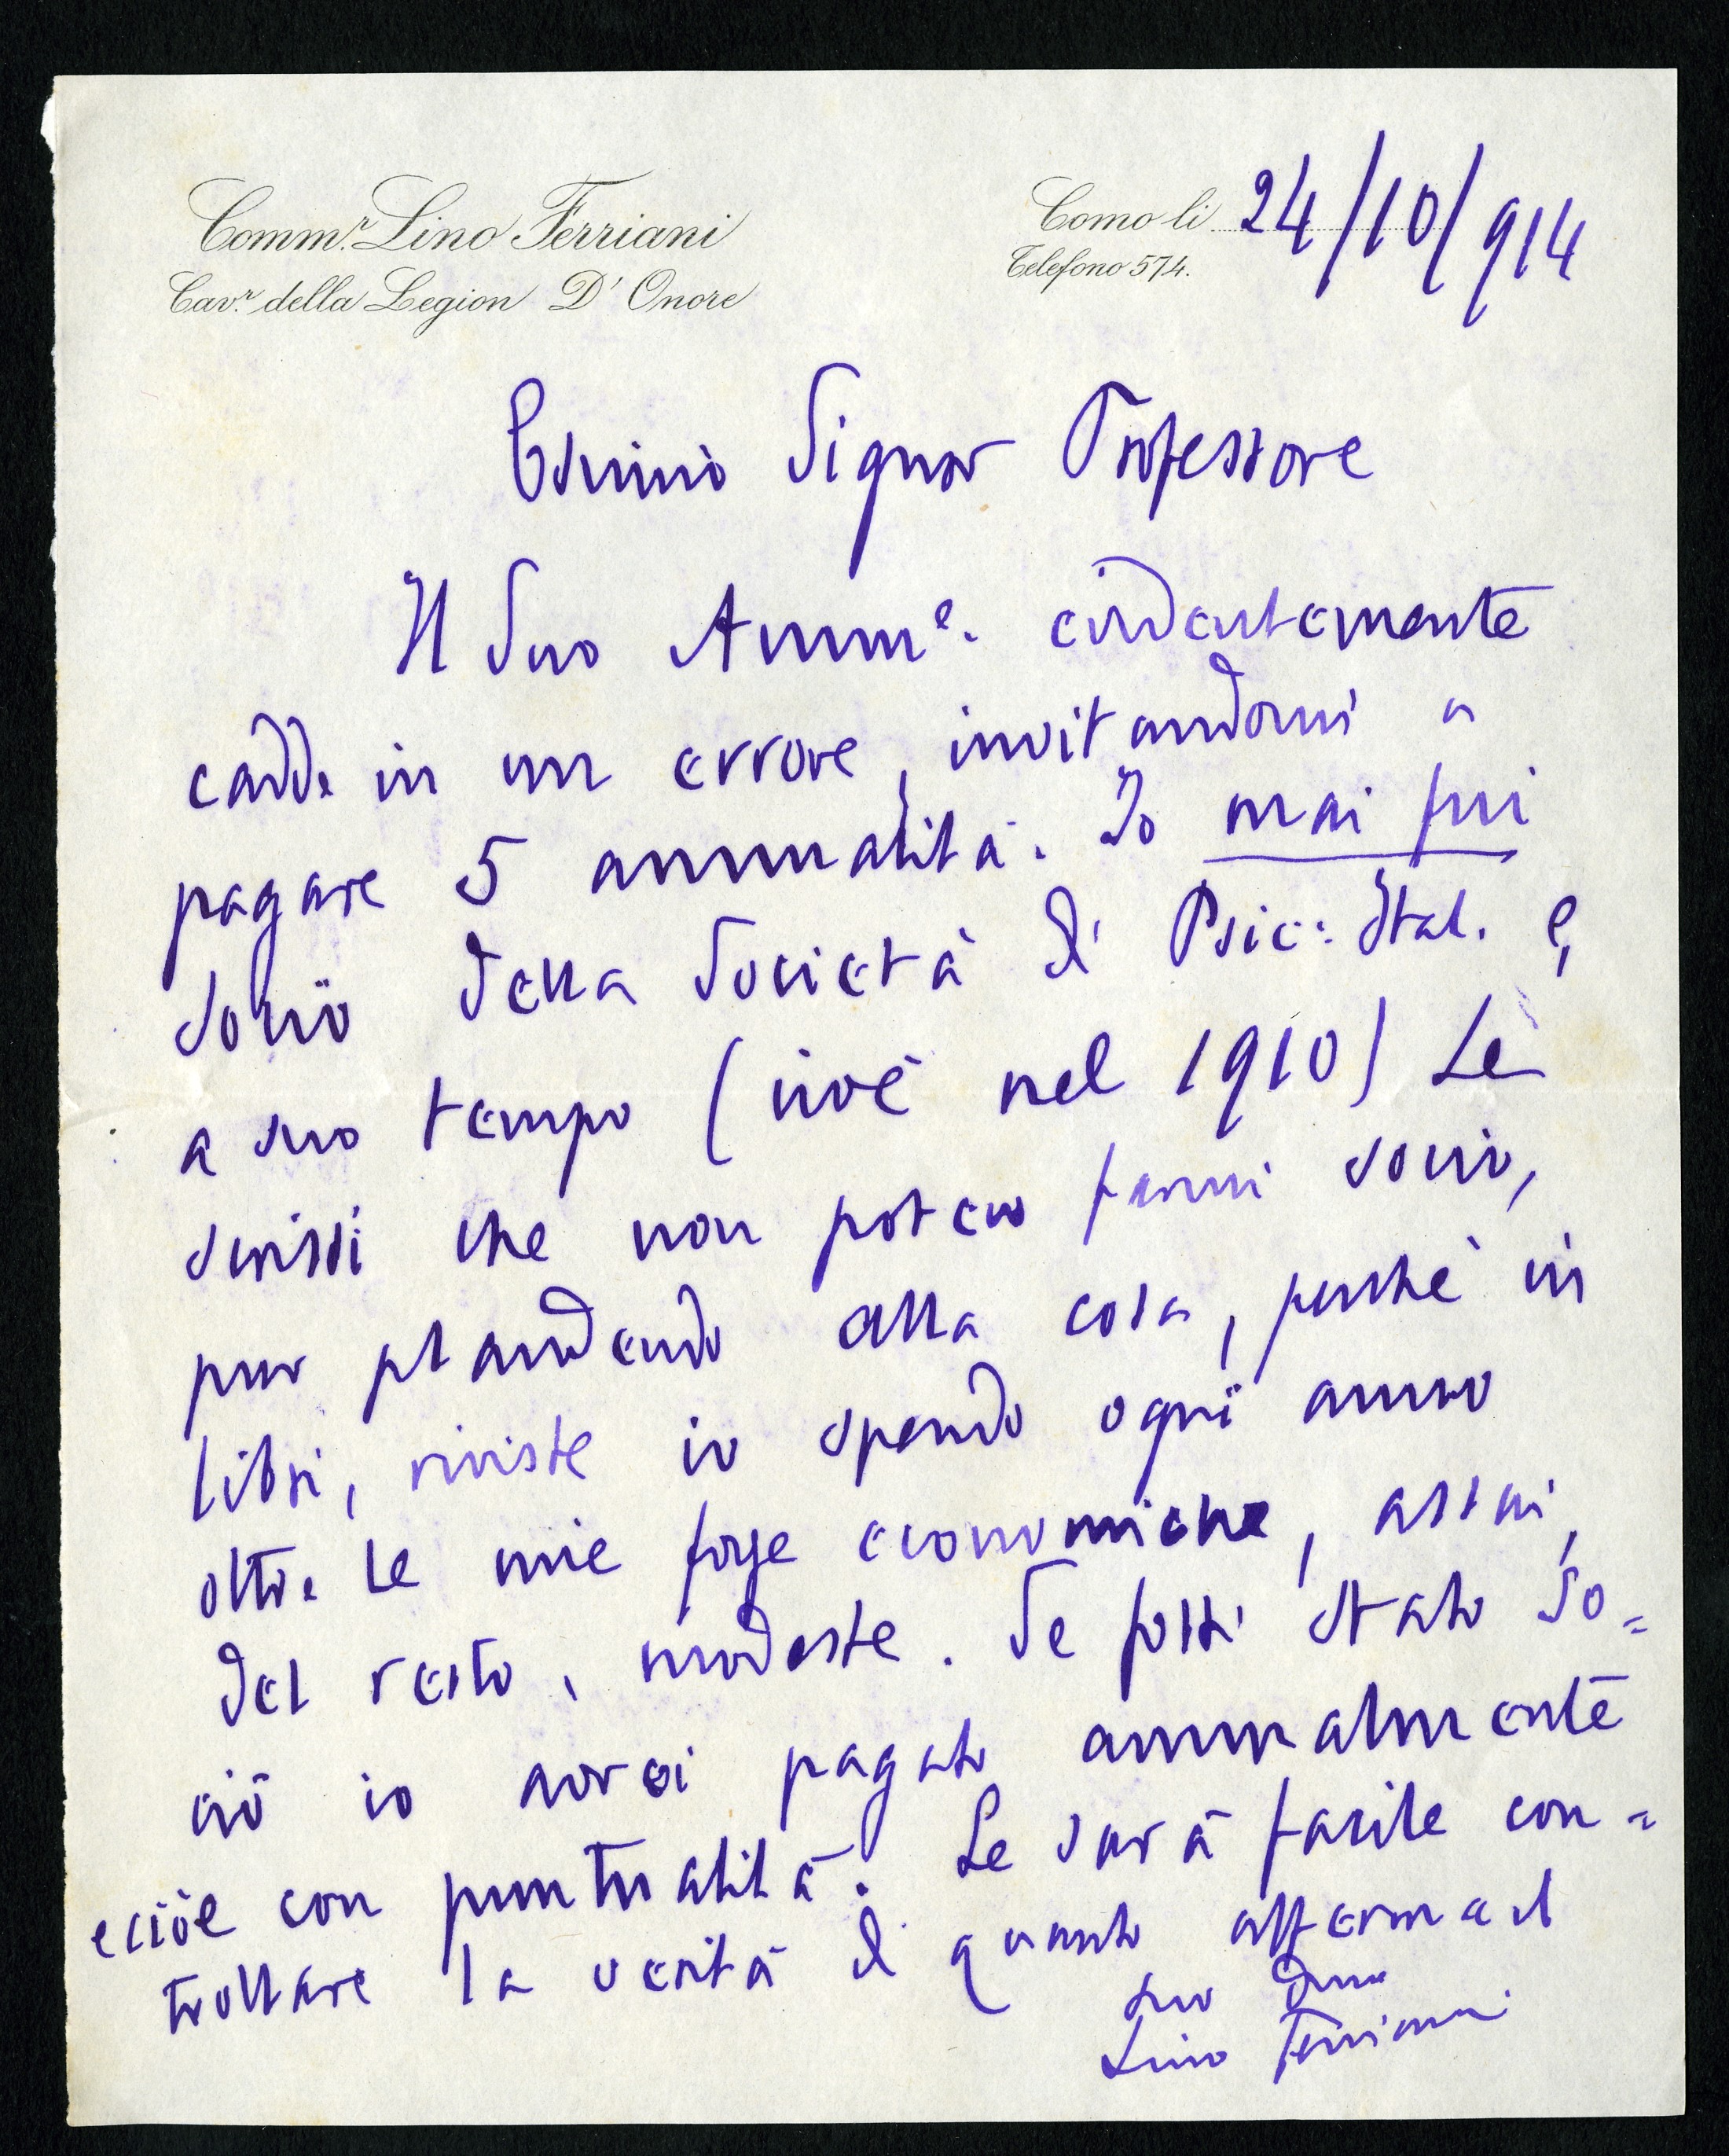 Comm.r Lino Ferriani
Cav.r della Legion D'Onore
Como li 24/10/914
Telefono 574.
Esimio Signor Professore
Il Suo Amm.e evidentemente
cadde in un errore, invitandomi a
pagare 5 annualità. Io mai fui
socio della Società di Psic: Ital. e,
a suo tempo (cioè nel 1910) Le
scrissi che non potevo farmi socio,
pur plaudendo alla cosa, perchè in
libri, riviste io spendo ogni anno
oltre le mie forze economiche, assai,
del resto, modeste. Se fossi stato So=
cio io avrei pagato annualmente
e cioè con puntualità. Le sarà facile con=
trollare la verità di quanto afferma il
suo Dmo
Lino Ferriani